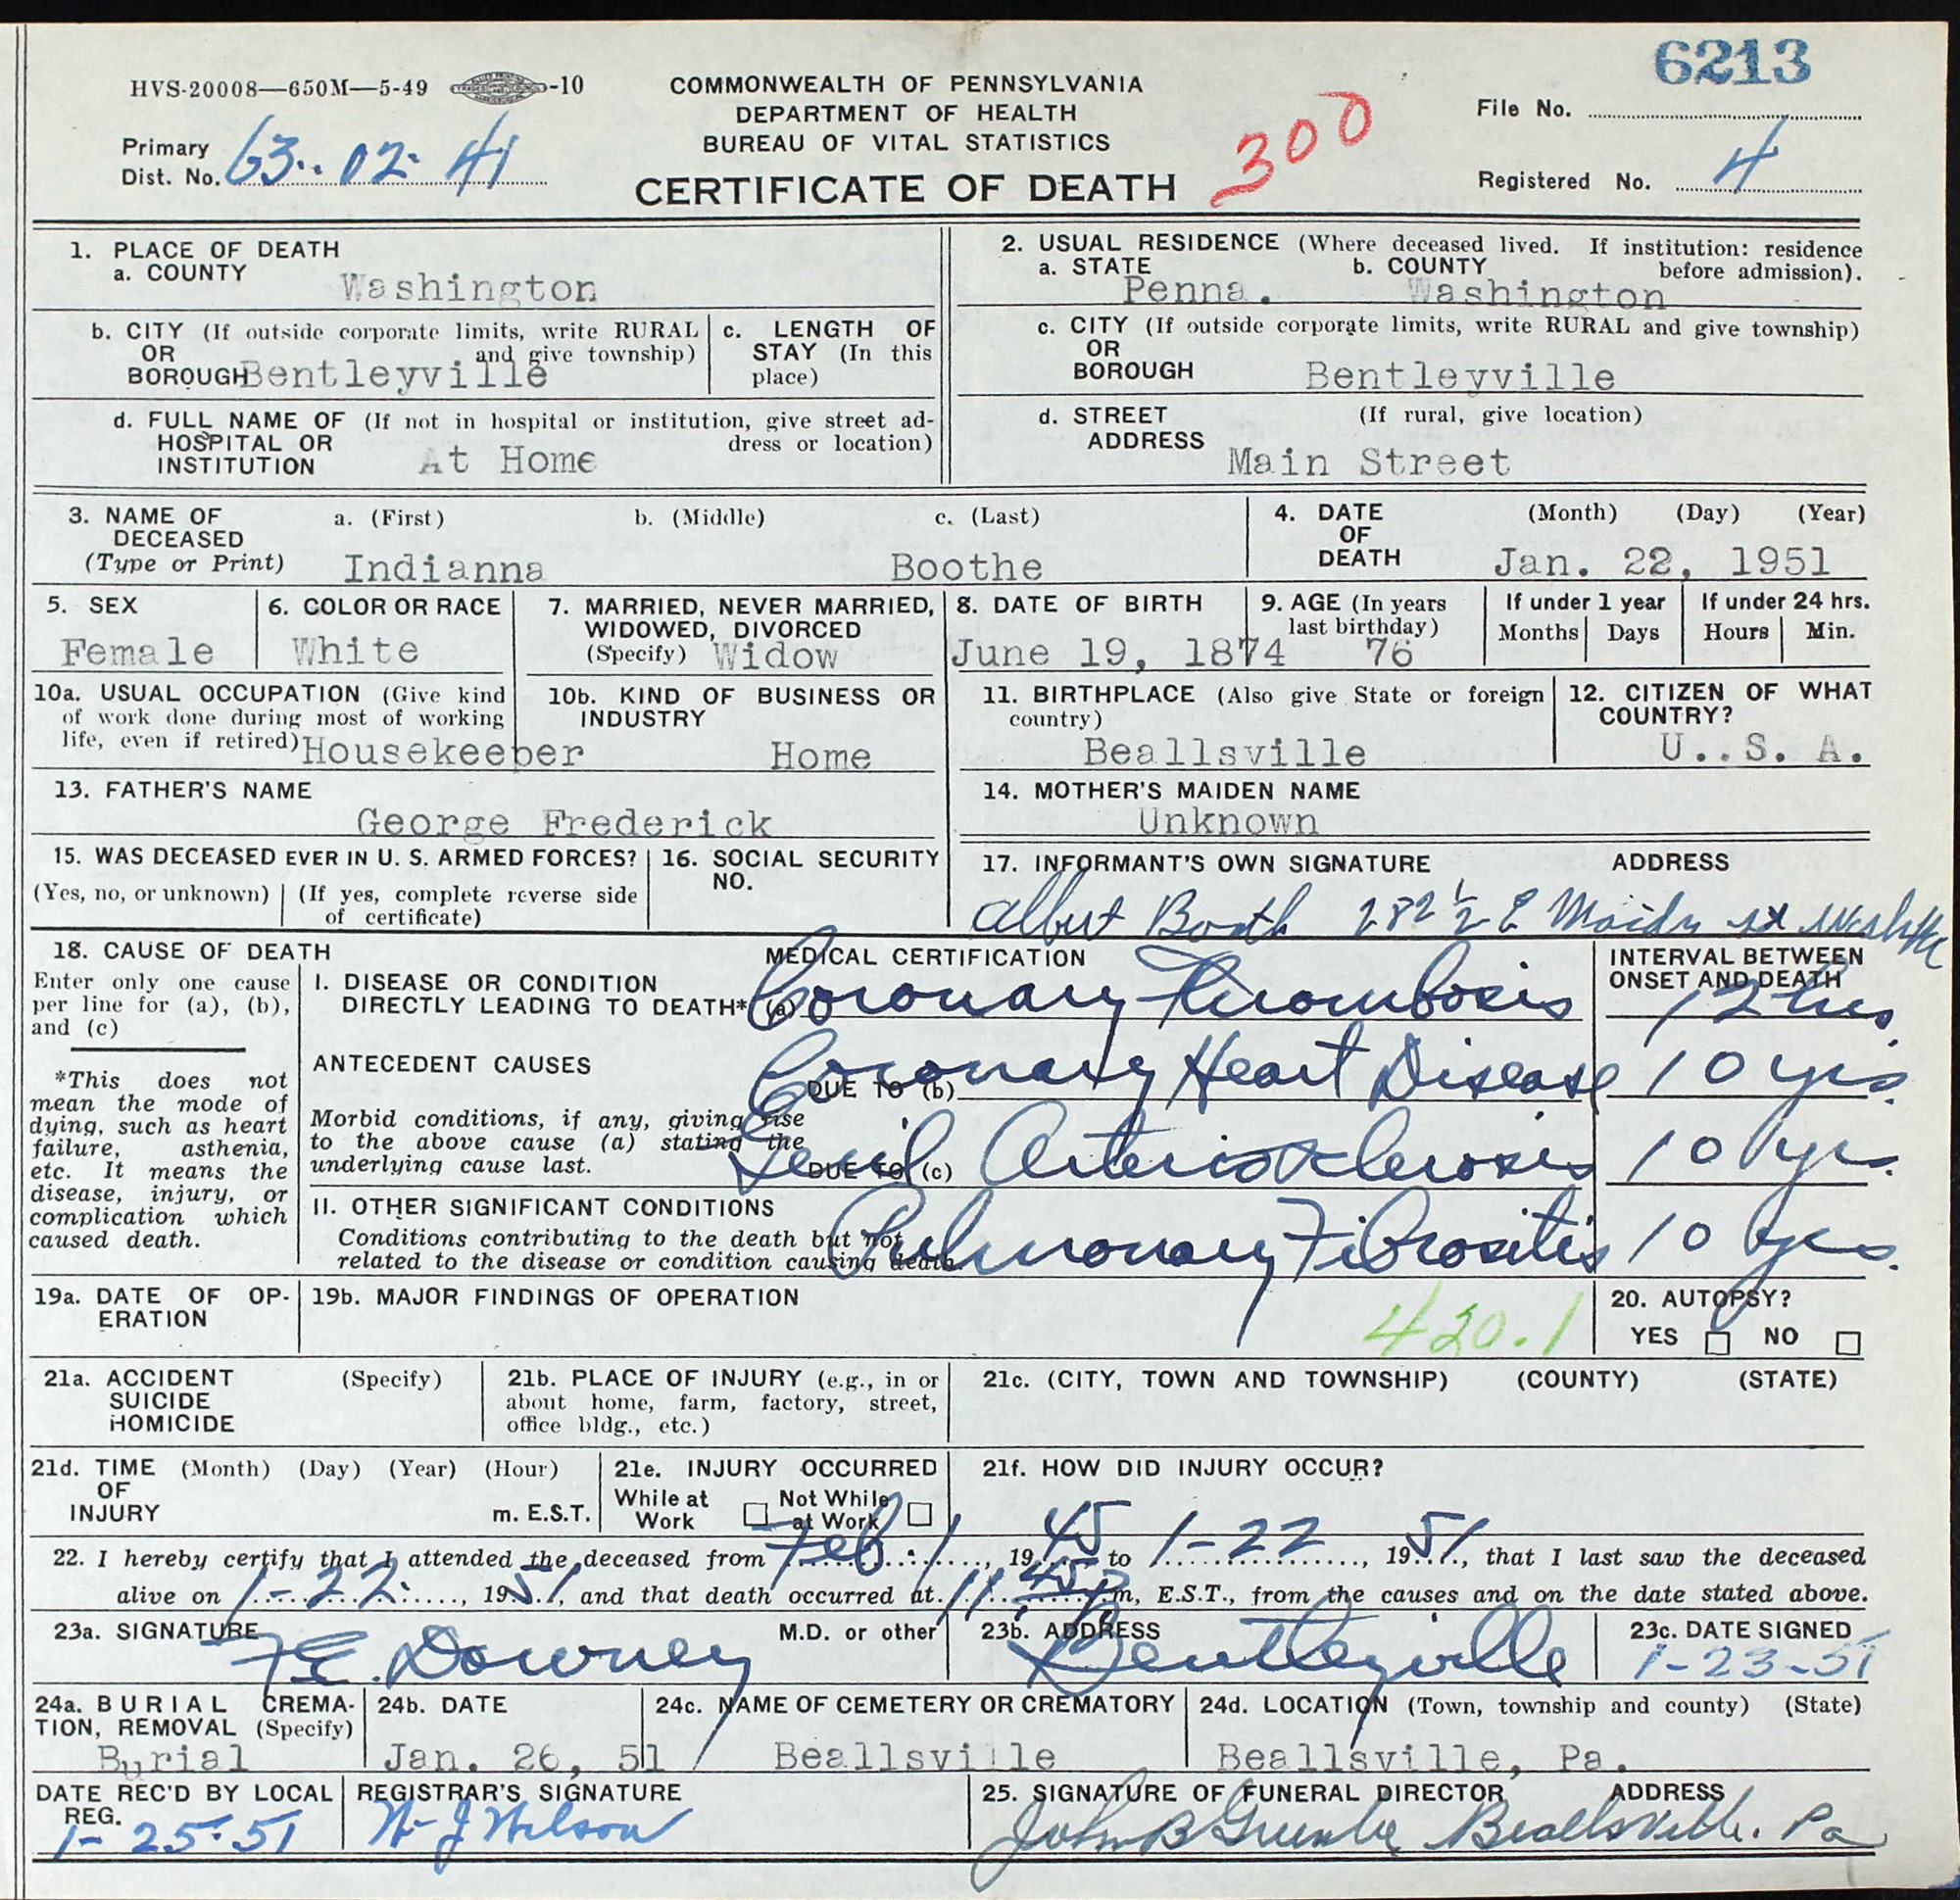 6213
HVS-20008—650M—5-49 -10
COMMONWEALTH OF PENNSYLVANIA
DEPARTMENT OF HEALTH
BUREAU OF VITAL STATISTICS
CERTIFICATE OF DEATH
300
File No.
Primary
Dist. No. 63-02-41
Registered No. 4
1. PLACE OF DEATH
a. COUNTY
Washington
2. USUAL RESIDENCE (Where deceased lived. If institution: residence
a. STATE b. COUNTY before admission).
Penna. Washington
b. CITY (If outside corporate limits, write RURAL
OR and give township)
BOROUGH Bentleyville
c. LENGTH OF
STAY (In this
place)
c. CITY (If outside corporate limits, write RURAL and give township)
OR
BOROUGH Bentleyville
d. FULL NAME OF (If not in hospital or institution, give street ad-
HOSPITAL OR dress or location)
INSTITUTION At Home
d. STREET (If rural, give location)
ADDRESS
Main Street
3. NAME OF a. (First) b. (Middle) c. (Last)
DECEASED
(Type or Print) Indianna Boothe
4. DATE (Month) (Day) (Year)
OF
DEATH Jan. 22, 1951
5. SEX
Female
6. COLOR OR RACE
White
7. MARRIED, NEVER MARRIED,
WIDOWED, DIVORCED
(Specify) Widow
8. DATE OF BIRTH
June 19, 1874
9. AGE (In years
last birthday)
76
If under 1 year
Months Days
If under 24 hrs.
Hours Min.
10a. USUAL OCCUPATION (Give kind
of work done during most of working
life, even if retired) Housekeeper
10b. KIND OF BUSINESS OR
INDUSTRY
Home
11. BIRTHPLACE (Also give State or foreign
country)
Beallsville
12. CITIZEN OF WHAT
COUNTRY?
U..S. A.
13. FATHER'S NAME
George Frederick
14. MOTHER'S MAIDEN NAME
Unknown
15. WAS DECEASED EVER IN U. S. ARMED FORCES?
(Yes, no, or unknown) (If yes, complete reverse side
of certificate)
16. SOCIAL SECURITY
NO.
17. INFORMANT'S OWN SIGNATURE ADDRESS
Albert Booth 282 1/2 E st
18. CAUSE OF DEATH
Enter only one cause
per line for (a), (b),
and (c)
*This does not
mean the mode of
dying, such as heart
failure, asthenia,
etc. It means the
disease, injury, or
complication which
caused death.
MEDICAL CERTIFICATION
INTERVAL BETWEEN
ONSET AND DEATH
I. DISEASE OR CONDITION
DIRECTLY LEADING TO DEATH* (a) Coronary Thrombosis 12 hrs
ANTECEDENT CAUSES
DUE TO (b) Coronary Heart Disease 10 yrs.
Morbid conditions, if any, giving rise
to the above cause (a) stating the
underlying cause last.
DUE TO (c) Senil Arteriosclerosis 10 yrs.
II. OTHER SIGNIFICANT CONDITIONS
Conditions contributing to the death but not
related to the disease or condition causing death.
Pulmonary Fibrositis 10 yrs.
19a. DATE OF OP-
ERATION
19b. MAJOR FINDINGS OF OPERATION
420.1
20. AUTOPSY?
YES NO
21a. ACCIDENT (Specify)
SUICIDE
HOMICIDE
21b. PLACE OF INJURY (e.g., in or
about home, farm, factory, street,
office bldg., etc.)
21c. (CITY, TOWN AND TOWNSHIP) (COUNTY) (STATE)
21d. TIME (Month) (Day) (Year) (Hour)
OF
INJURY m. E.S.T.
21e. INJURY OCCURRED
While at Not While
Work at Work
21f. HOW DID INJURY OCCUR?
22. I hereby certify that I attended the deceased from Feb. 1, 1945 to 1-22, 1951, that I last saw the deceased
alive on 1-22, 1951, and that death occurred at 11:45 P.m, E.S.T., from the causes and on the date stated above.
23a. SIGNATURE M.D. or other
F.E. Downey
23b. ADDRESS
Bentleyville
23c. DATE SIGNED
1-23-51
24a. BURIAL CREMA-
TION, REMOVAL (Specify)
Burial
24b. DATE
Jan. 26, 51
24c. NAME OF CEMETERY OR CREMATORY
Beallsville
24d. LOCATION (Town, township and county) (State)
Beallsville, Pa.
DATE REC'D BY LOCAL
REG.
1-25-51
REGISTRAR'S SIGNATURE
W J Wilson
25. SIGNATURE OF FUNERAL DIRECTOR ADDRESS
John B Beallsville. Pa